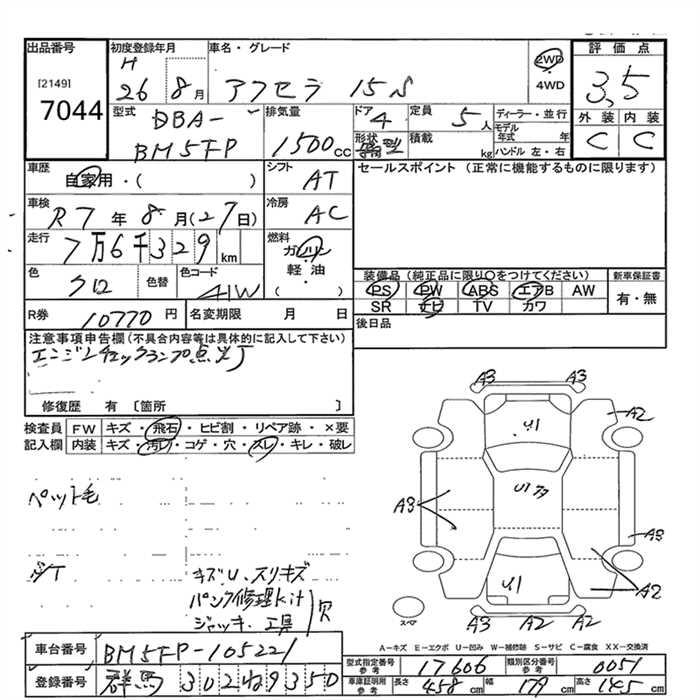 出品番号
[2149]
7044
初度登録年月
H
26 8月
車名・グレード
アクセラ 15S
2WD
・
4WD
評価点
3.5
外装 内装
C C
型式
DBA-
BM5FP
排気量
1500cc
ドア
4
形状
定員
5人
積載
kg
ディーラー・並行
モデル
年式 年
ハンドル 左・右
車歴
自家用・( )
シフト
AT
セールスポイント (正常に機能するものに限ります)
車検
R7年8月(27日)
冷房
AC
走行
7万6千329km
燃料
ガソリン
・
軽油
・
( )
色
クロ
色替
色コード
41W
装備品 (純正品に限り○をつけてください)
PS PW ABS エアB AW
SR ナビ TV カワ
新車保証書
有・無
R券
10770円
名変期限 月 日
後日品
注意事項申告欄 (不具合内容等は具体的に記入して下さい)
エンジンチェックランプ点灯
修復歴 有 [箇所 ]
検査員
記入欄
FW キズ・飛石・ヒビ割・リペア跡・×要
内装 キズ・汚レ・コゲ・穴・スレ・キレ・破レ
ペット毛
キズU、スリキズ
パンク修理kit
ジャッキ、工具 欠
A3 A3
U1
A2
U1 73
A3
A3
U1
A2
A3 A2 A2
スペア
A－キズ E－エクボ U－凹み W－補修跡 S－サビ C－腐食 XX－交換済
車台番号
BM5FP-105221
登録番号
群馬 302ね9350
型式指定番号
参考
17606
類別区分番号
参考
0051
車庫証明用
参考
長さ
458cm
幅
179cm
高さ
145cm